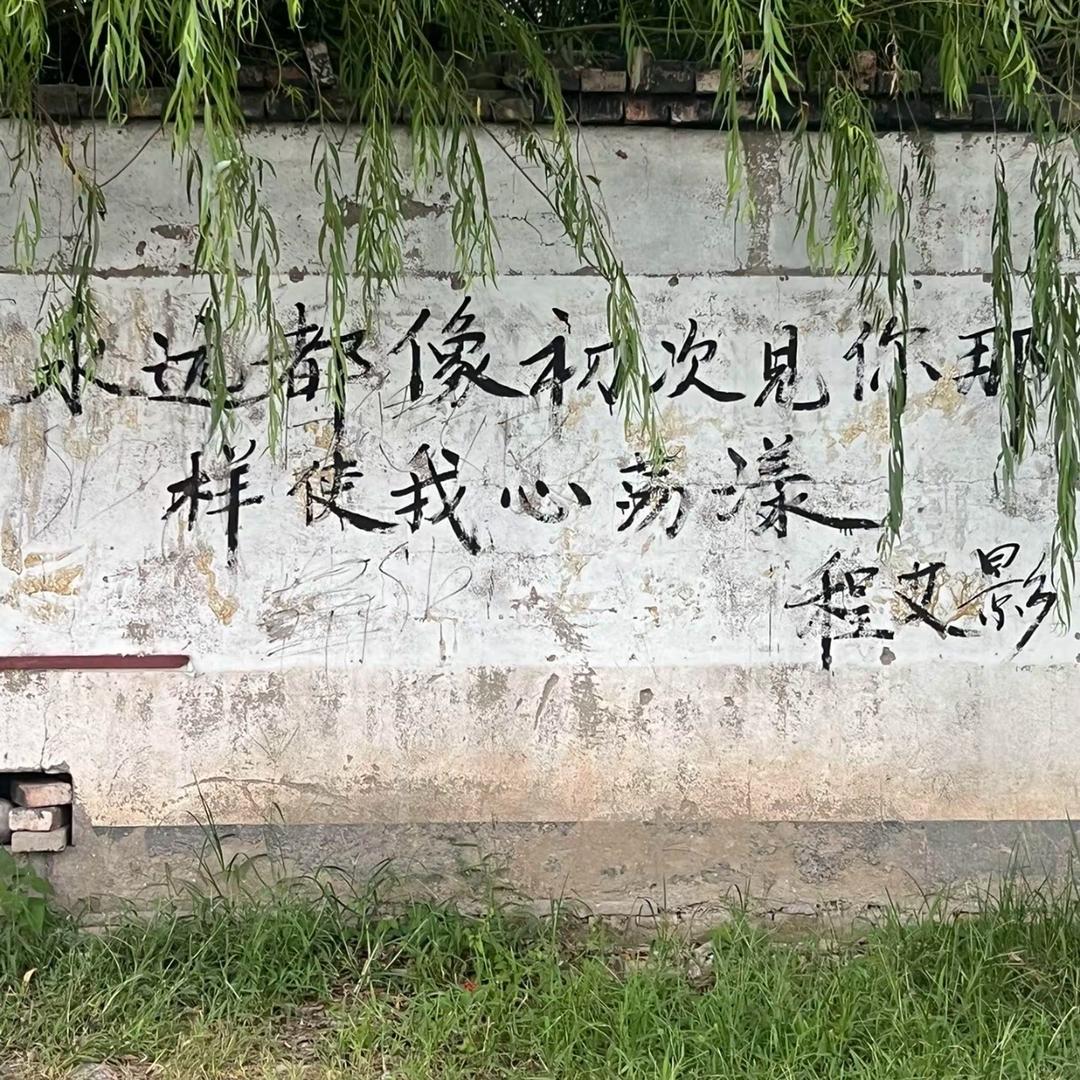 永远都像初次见你那
样使我心荡漾
程文影